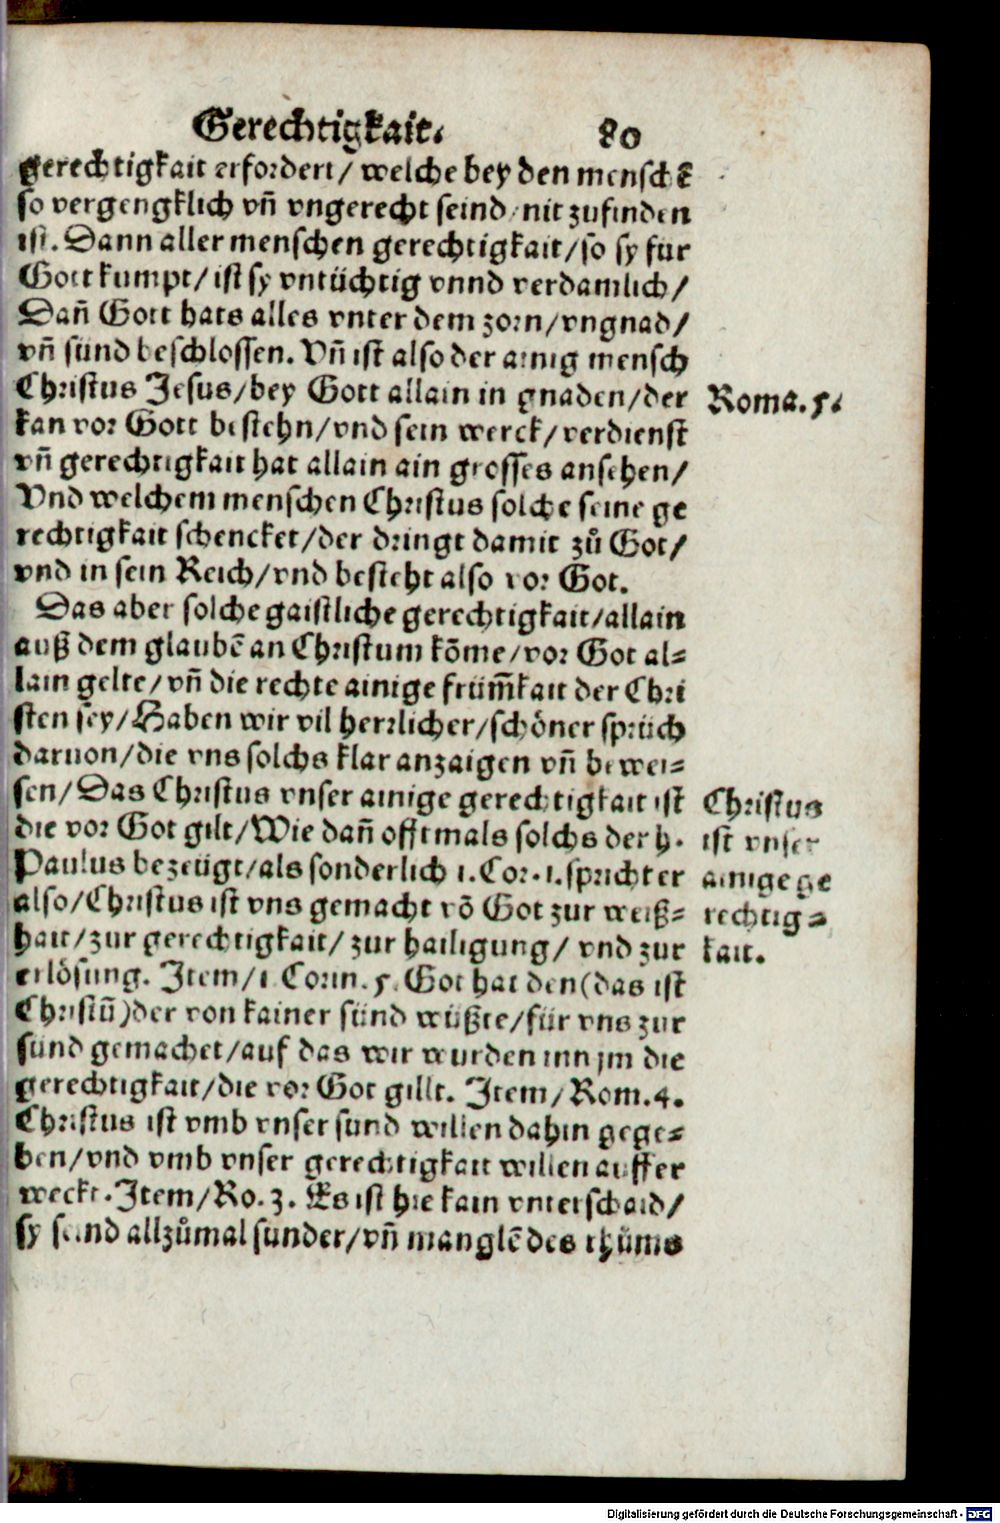 Gerechtigkait. 80
gerechtigkait erfordert/ welche bey den menschē
so vergengklich vñ vngerecht seind/nit zufinden
ist. Dann aller menschen gerechtigkait/so sy für
Gott kumpt/ ist sy vntüchtig vnnd verdamlich/
Dañ Gott hats alles vnter dem zorn/vngnad/
vñ sünd beschlossen. Vñ ist also der ainig mensch
Christus Jesus/bey Gott allain in gnaden/der
Roma. 5.
kan vor Gott bestehn/vnd sein werck/verdienst
vñ gerechtigkait hat allain ain grosses ansehen/
Vnd welchem menschen Christus solche seine ge
rechtigkait schencket/der dringt damit zů Got/
vnd in sein Reich/vnd besteht also vor Got.
Das aber solche gaistliche gerechtigkait/allain
auß dem glaubē an Christum kōme/vor Got al⸗
lain gelte/vñ die rechte ainige frūm̄kait der Chri
sten sey/Haben wir vil herrlicher/schöner sprüch
daruon/die vns solchs klar anzaigen vñ bewei⸗
sen/Das Christus vnser ainige gerechtigkait ist
die vor Got gilt/Wie dañ offtmals solchs der h.
Paulus bezeügt/als sonderlich 1.Cor.1.spricht er
also/Christus ist vns gemacht vō Got zur weiß⸗
hait/zur gerechtigkait/ zur hailigung/ vnd zur
erlösung. Item/1 Corin. 5. Got hat den(das ist
Christū)der von kainer sünd wüßte/für vns zur
sünd gemachet/auf das wir wurden inn jm die
gerechtigkait/die vor Got gillt. Item/Rom.4.
Christus ist vmb vnser sünd willen dahin gege⸗
ben/vnd vmb vnser gerechtigkait willen aufferweckt. Item/Ro.3. Es ist hie kain vnterschaid/
sy seind allzůmal sunder/vñ manglē des rhůms
Christus
ist vnser
ainige ge
rechtig⸗
kait.
Digitalisierung gefördert durch die Deutsche Forschungsgemeinschaft - DFG